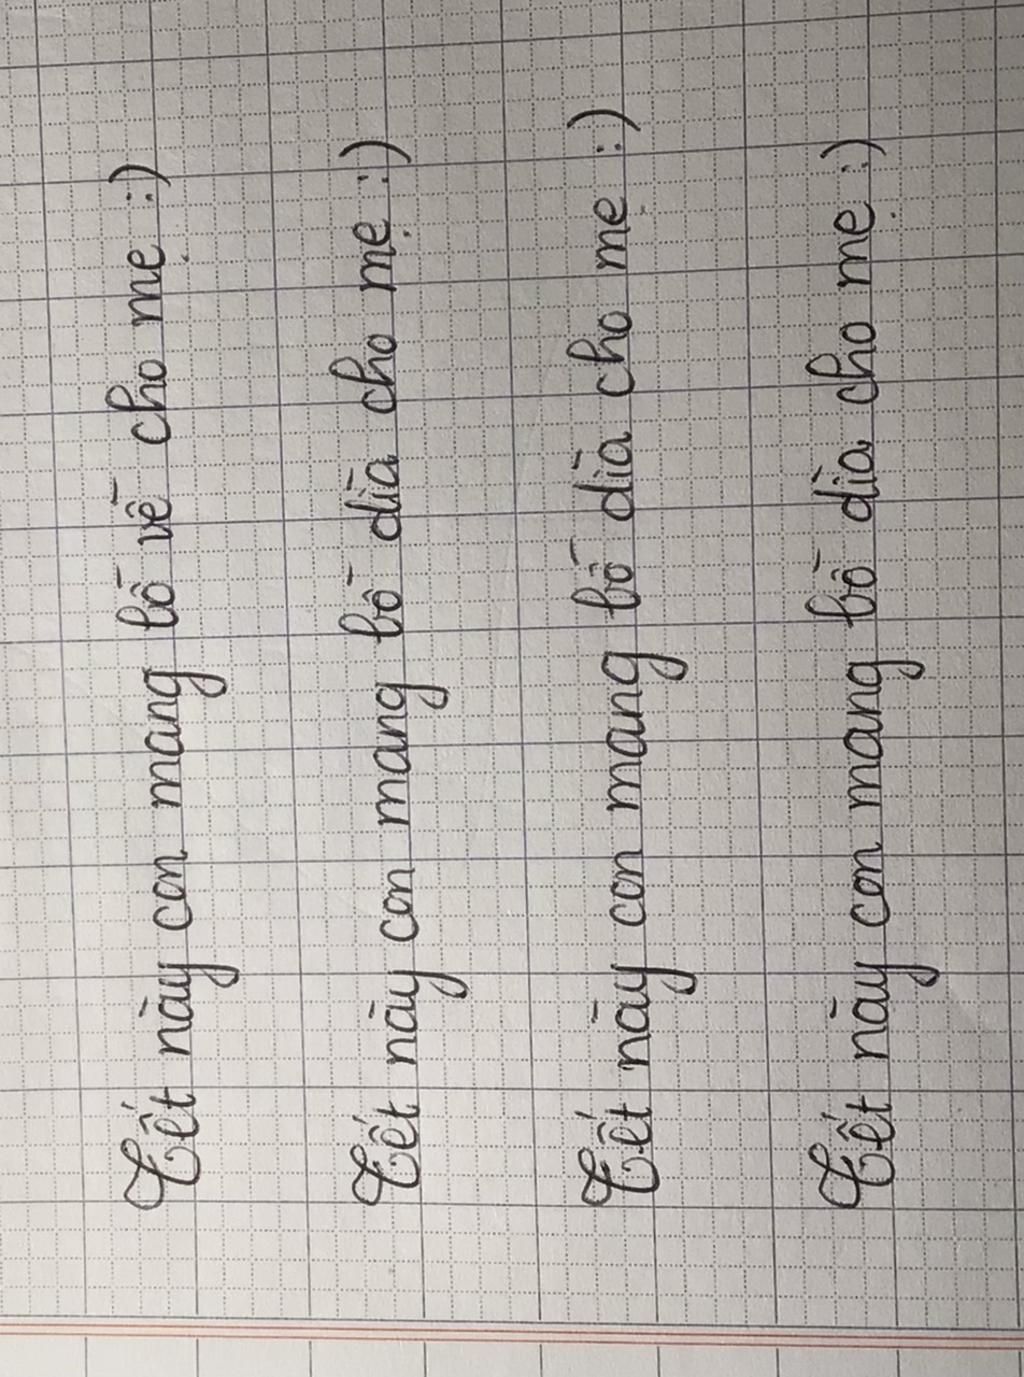 Tết này con mang bồ về cho mẹ :)
Tết này con mang bồ dìa cho mẹ :)
Tết này con mang bồ dìa cho mẹ :)
Tết này con mang bồ dìa cho mẹ :)